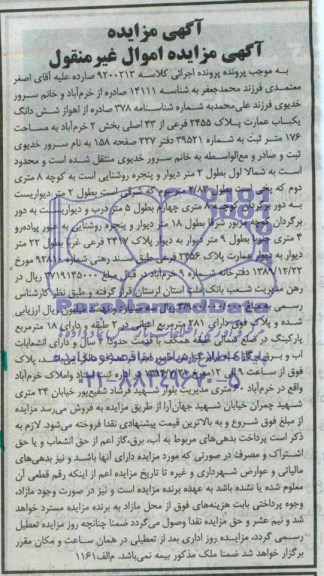 آگهی مزایده
آگهی مزایده اموال غیرمنقول
به موجب پرونده پرونده اجرائی کلاسه ۹۲۰۰۲۱۳ صادره علیه آقای اصغر
معتمدی فرزند محمدجعفر به شناسه ۱۴۱۱۱ صادره از خرم‌آباد و خانم سرور
خدیوی فرزند علی‌محمدبه شماره شناسنامه ۳۷۸ صادره از اهواز شش دانگ
یکباب عمارت پلاک ۳۴۵۵ فرعی از ۴۳ اصلی بخش ۲ خرم‌آباد به مساحت
۱۷۶ متر ثبت به شماره ۳۹۵۲۱ دفتر ۲۳۷ صفحه ۱۵۸ به نام سرور خدیوی
ثبت و صادر و مع‌الواسطه به خانم سرور خدیوی منتقل شده است و محدود
است به شمالا اول بطول ۲ متر دیوار و پنجره روشنایی است به کوچه ۸ متری
دوم که بخر است بطول سوم که شرقی است بطول ۲ متر دیواریست
به دور برگردان کوچه ۸ متری چهارم بطول ۵ متر درب و دیواریست به دور
برگردان کوچه مزبور شرقا بطول ۱۸ متر دیوار و پنجره روشنایی به عبور پیاده‌رو
۴ متری جنوبا بطول ۹ متر دیوار به دیوار پلاک ۳۴۱۷ فرعی غربا بطول ۲۲ متر
دیوار به دیوار عمارت پلاک ۳۴۵۶ فرعی طبق سند رهنی شماره ۹۳۸۱۰ مورخ
۱۳۸۹/۱۲/۲۲ دفترخانه شماره ۹ خرم‌آباد در قبال مبلغ ۳۷۱۹۱۴۵۰۰۰ ریال در
رهن مدیریت شعب بانک ملت استان لرستان قرار گرفته و طبق نظر کارشناس
رسمی به مبلغ میلیون ریال ارزیابی
شده و پلاک فوق دارای ۲۸۱ مترمربع اعیانی در ۲ طبقه و دارای ۱۸ مترمربع
پارکینگ در ضلع شمالی طبقه همکف با قدمت حدود ۲۰ سال و دارای انشعابات
آب و برق پلاک
فوق از ساعت ۹ الی ۱۲ مورخ در اداره ثبت اسناد واملاک خرم‌آباد
واقع در خرم‌آباد ۶۰متری مدیریت بلوار شهید فرشاد شفیع‌پور خیابان ۲۴ متری
شهید چمران خیابان شهید جهان‌آرا از طریق مزایده به فروش می‌رسد مزایده
از مبلغ فوق شروع و به بالاترین قیمت پیشنهادی نقدا فروخته می‌شود. لازم به
ذکر است پرداخت بدهی‌های مربوط به آب، برق،گاز اعم از حق انشعاب و یا حق
اشتراک و مصرف در صورتی که مورد مزایده دارای آنها باشد و نیز بدهی‌های
مالیاتی و عوارض شهرداری و غیره تا تاریخ مزایده اعم از اینکه رقم قطعی آن
معلوم شده یا نشده باشد به عهده برنده مزایده است و نیز در صورت وجود مازاد،
وجوه پرداختی بابت هزینه‌های فوق از محل مازاد به برنده مزایده مسترد خواهد
شد و نیم عشر و حق مزایده نقدا وصول می‌گردد ضمنا چنانچه روز مزایده تعطیل
رسمی گردد، مزایده روز اداری بعد از تعطیلی در همان ساعت و مکان مقرر
برگزار خواهد شد ضمنا ملک مذکور بیمه نمی‌باشد. م‌الف۱۱۶۱
ParsNamadData
۰۲۱-۸۸۳۴۹۶۷۰-۵